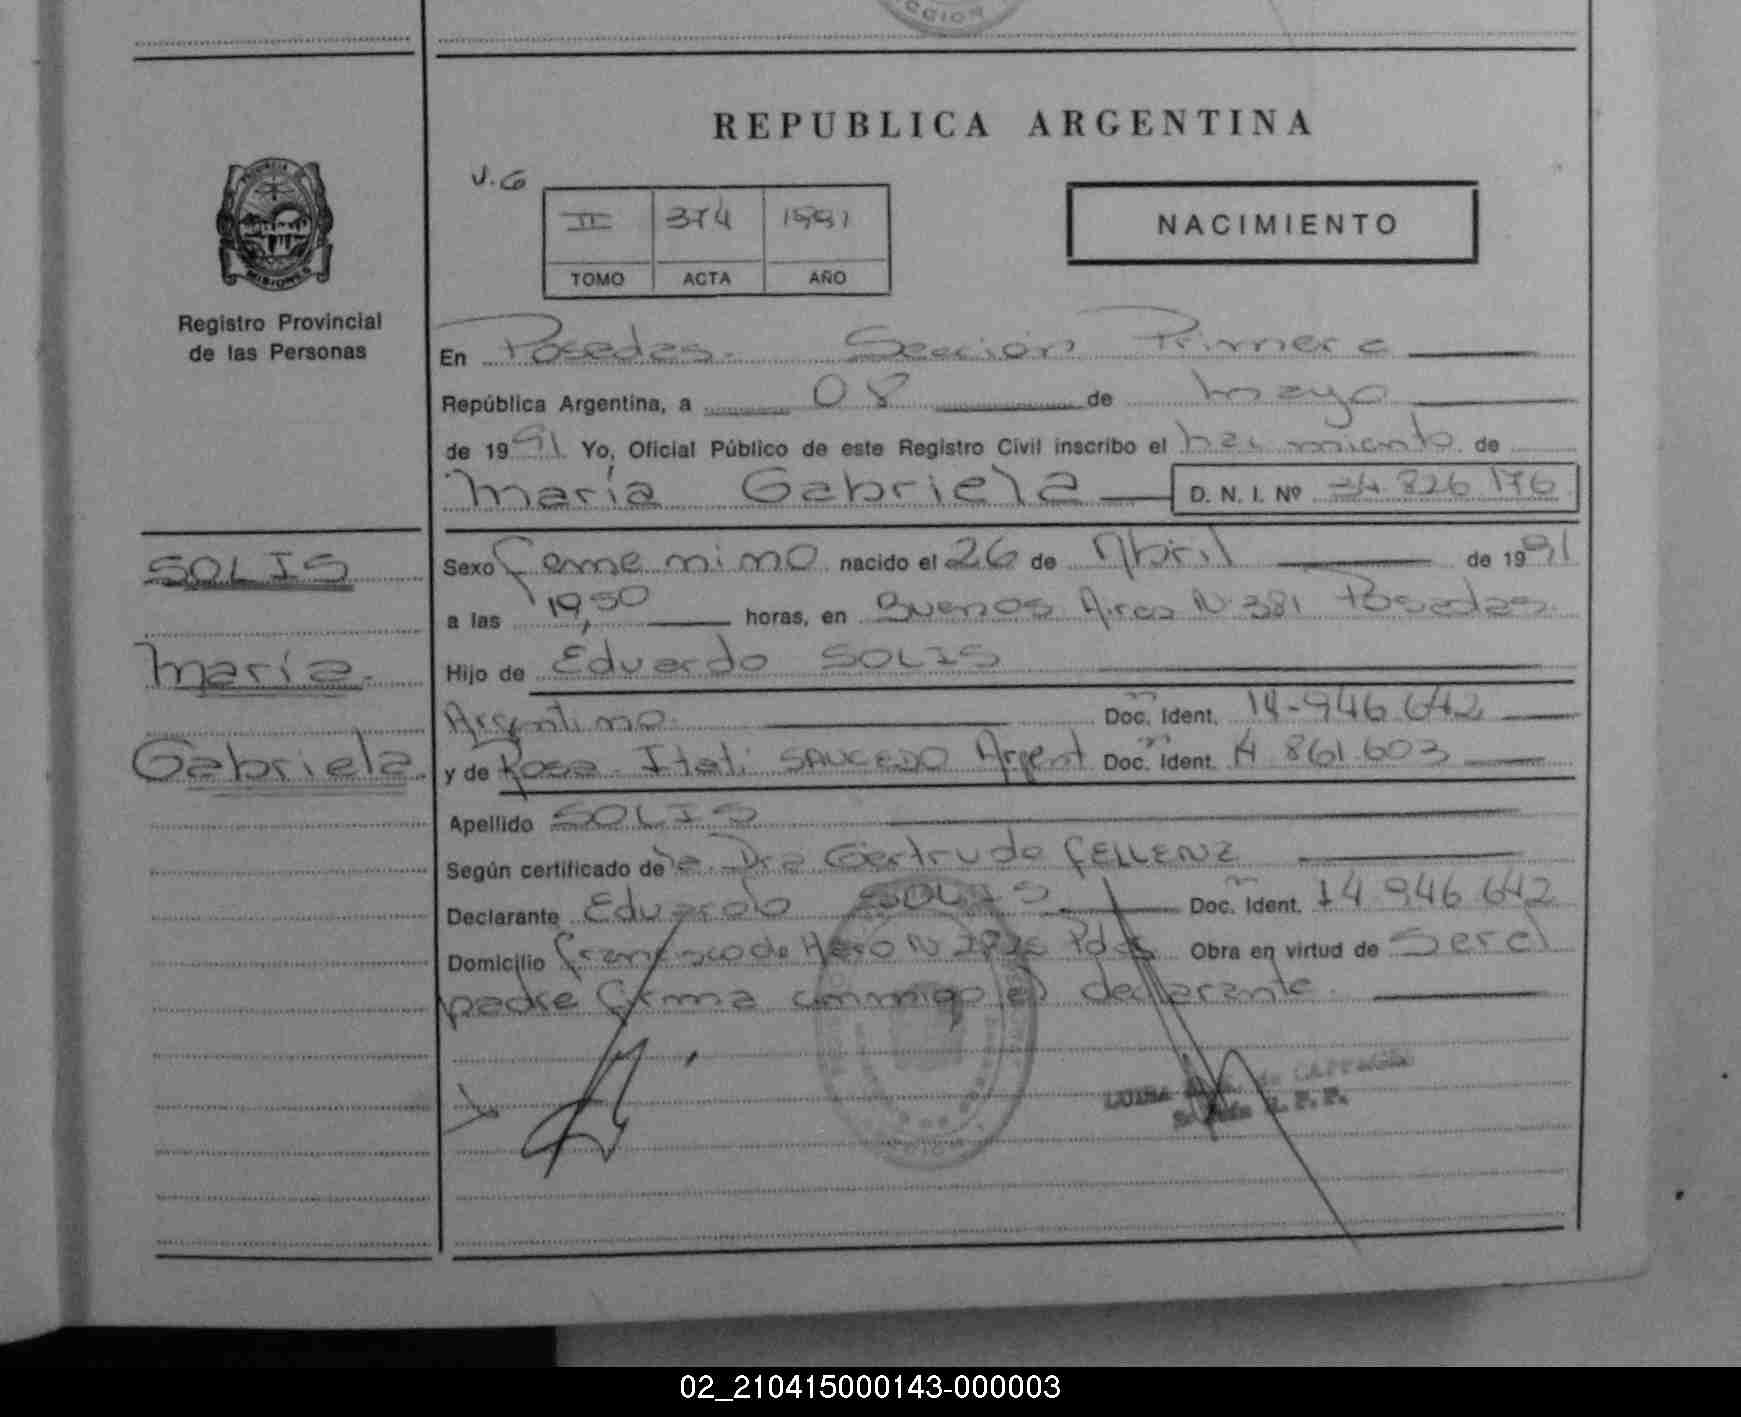 CCION
REPUBLICA ARGENTINA
V.G
II 374 1991
TOMO ACTA AÑO
NACIMIENTO
PROVINCIA DE
MISIONES
Registro Provincial
de las Personas
En Posadas. Sección Primera
República Argentina, a 08 de mayo
de 1991 Yo, Oficial Público de este Registro Civil inscribo el nacimiento de
María Gabriela D. N. I. Nº 826 176
SOLIS
María
Gabriela
Sexo femenino nacido el 26 de Abril de 1991
a las 19,50 horas, en Buenos Aires Nº 381 Posadas.
Hijo de Eduardo SOLIS
Argentino. Doc. Ident. 14-946 642
y de Rosa Itatí SAUCEDO Argent Doc. Ident. 14 861.603
Apellido SOLIS
Según certificado de la Dra Gertrude FELLENZ
Declarante Eduardo SOLIS Doc. Ident. 14 946 642
Domicilio Francisco de Pdas Obra en virtud de Ser el
padre firma conmigo el declarante.
LUISA de
R. P. P.
02_210415000143-000003